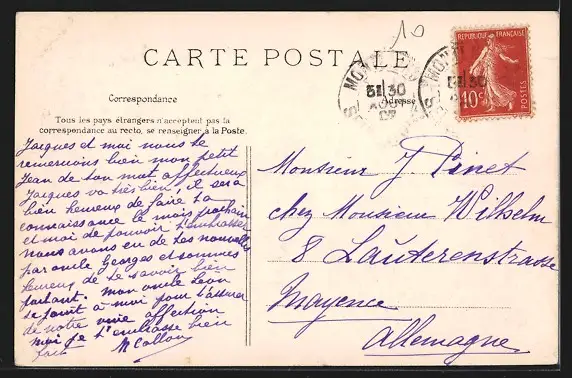 10
CARTE POSTALE
REPUBLIQUE FRANÇAISE
10c
POSTES
Correspondance
Adresse
Tous les pays étrangers n'acceptent pas la
correspondance au recto, se renseigner à la Poste.
Jacques et moi nous te
remercions bien mon petit
Jean de ton mot affectueux
Jacques va très bien, il sera
bien heureux de faire ta
connaissance le mois prochain
et moi de pouvoir t'embrasser
nous avons eu de tes nouvelles
par oncle Georges et sommes
heureux de te savoir bien
portant. mon oncle Léon
se joint à moi pour t'assurer
de notre vive affection
moi je t'embrasse bien
fort
Monsieur J. Pinet
chez Monsieur Wilhelm
8 Lauterenstrasse
Mayence
Allemagne